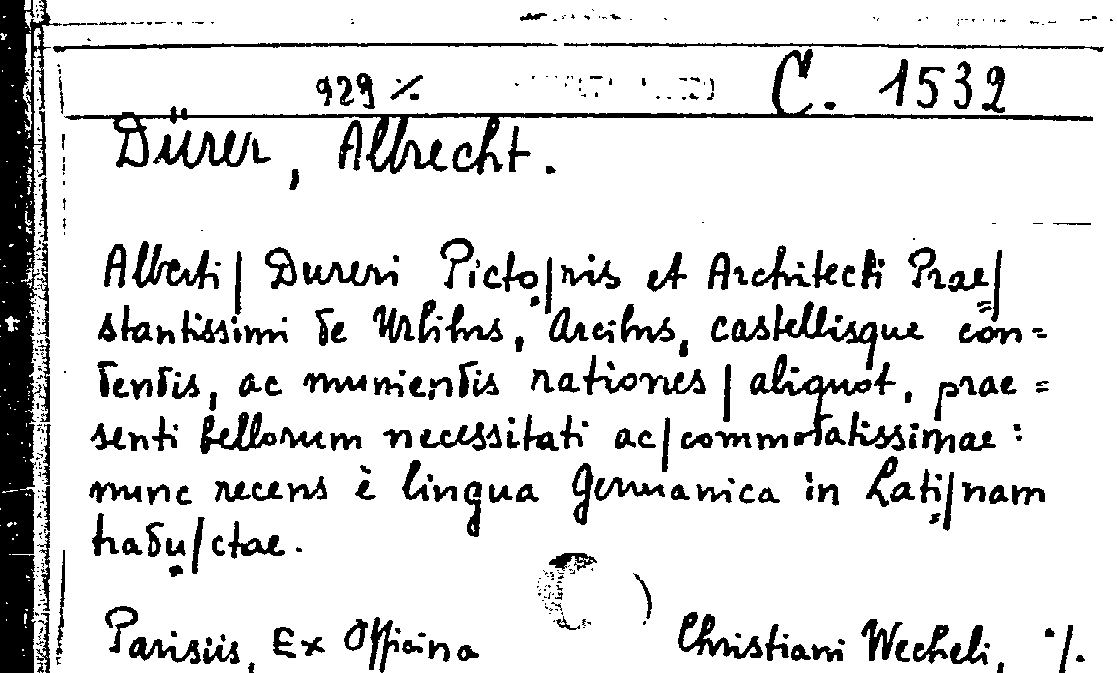 929 ٪ C. 1532
Dürer, Albrecht.
Alberti| Dureri Picto|ris et Architecti Prae|
stantissimi de Urbibus, Arcibus, castellisque con=
dendis, ac muniendis rationes | aliquot, prae =
senti bellorum necessitati ac|commodatissimae :
nunc recens è lingua Germanica in Lati|nam
tradu|ctae.
Parisiis, Ex Officina Christiani Wecheli, ٪.